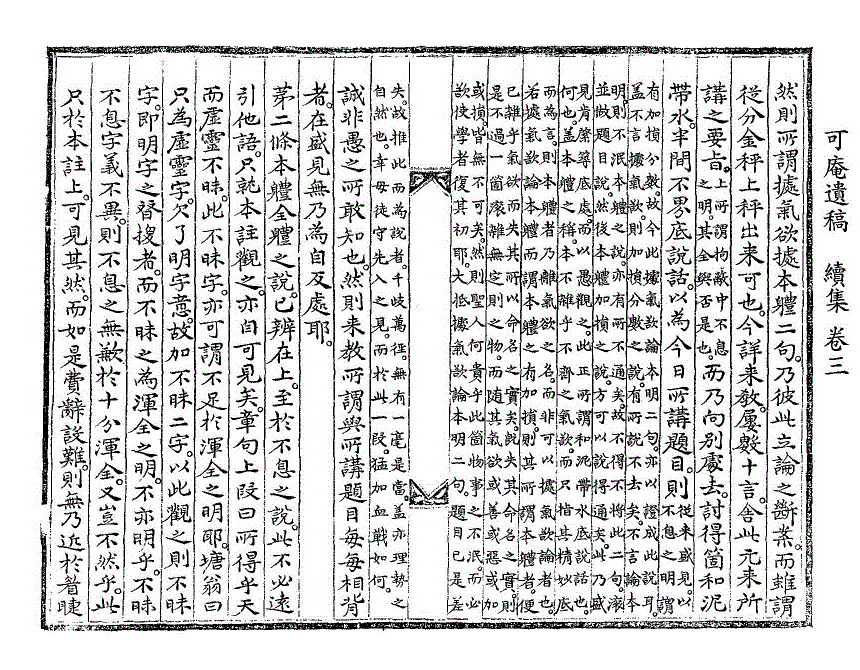 可庵遺稿 續集 卷三
然則所謂據氣欲據本體二句。乃彼此立論之斷案。而雖謂
從分金秤上秤出来可也。今詳来敎。屢數十言。舍此元来所
講之要旨。上所謂拘蔽中不息
之明。其全與否是也。而乃向別處去。討得箇和泥
帶水。半間不界底說話。以為今日所講題目。則從来盛見。以
不息之明。謂
有加損分數。故今此據氣欲論本明二句。亦以證成此說耳。
盖不言據氣欲。則加損分數之說。有所說不去矣。不言論本
明。則不泯本體之說。亦有所不通矣。故不得不將此二句。滾
並做題目說。然後本體加損之說。方可以說得通矣。此乃盛
見肯綮筭底處。而以愚觀之。此正所謂和泥帶水底說話也。
何也。盖本體之稱。本不離乎不齊之氣欲。而只指其精妙底
而為言。則本體者。乃離氣欲之名。而非可以據氣欲論者也。
若據氣欲論本體而謂本體之有加損。則其所謂本體者。便
已雜乎氣欲而失其所以命名之實矣。旣失其命名之實。則
是不過一箇滾雜無定之物。而隨其氣欲或善或惡或加
或損。皆無不可矣。然則聖人何貴乎此箇物事之不泯。而必
欲使學者復其初耶。大抵據氣欲論本明二句。題目已是差
失。故推此而為說者。千歧萬徑。無有一毫是當。盖亦理勢之
自然也。幸毋徒守先入之見。而於此一段。猛加血戰如何。
誠非愚之所敢知也。然則来敎所謂與所講題目每每相背
者。在盛見無乃為自反處耶。
第二條本體全體之說。已辨在上。至於不息之說。此不必遠
引他語。只就本註觀之。亦自可見矣。章句上段曰所得乎天
而虛靈不昧。此不昧字。亦可謂不足於渾全之明耶。塘翁曰
只為虛靈字。欠了明字意。故加不昧二字。以此觀之則不昧
字。卽明字之替換者。而不昧之為渾全之明。不亦明乎。不昧
不息字義不異。則不息之無歉於十分渾全。又豈不然乎。此
只於本註上。可見其然。而如是費辭說難。則無乃近於眷睫